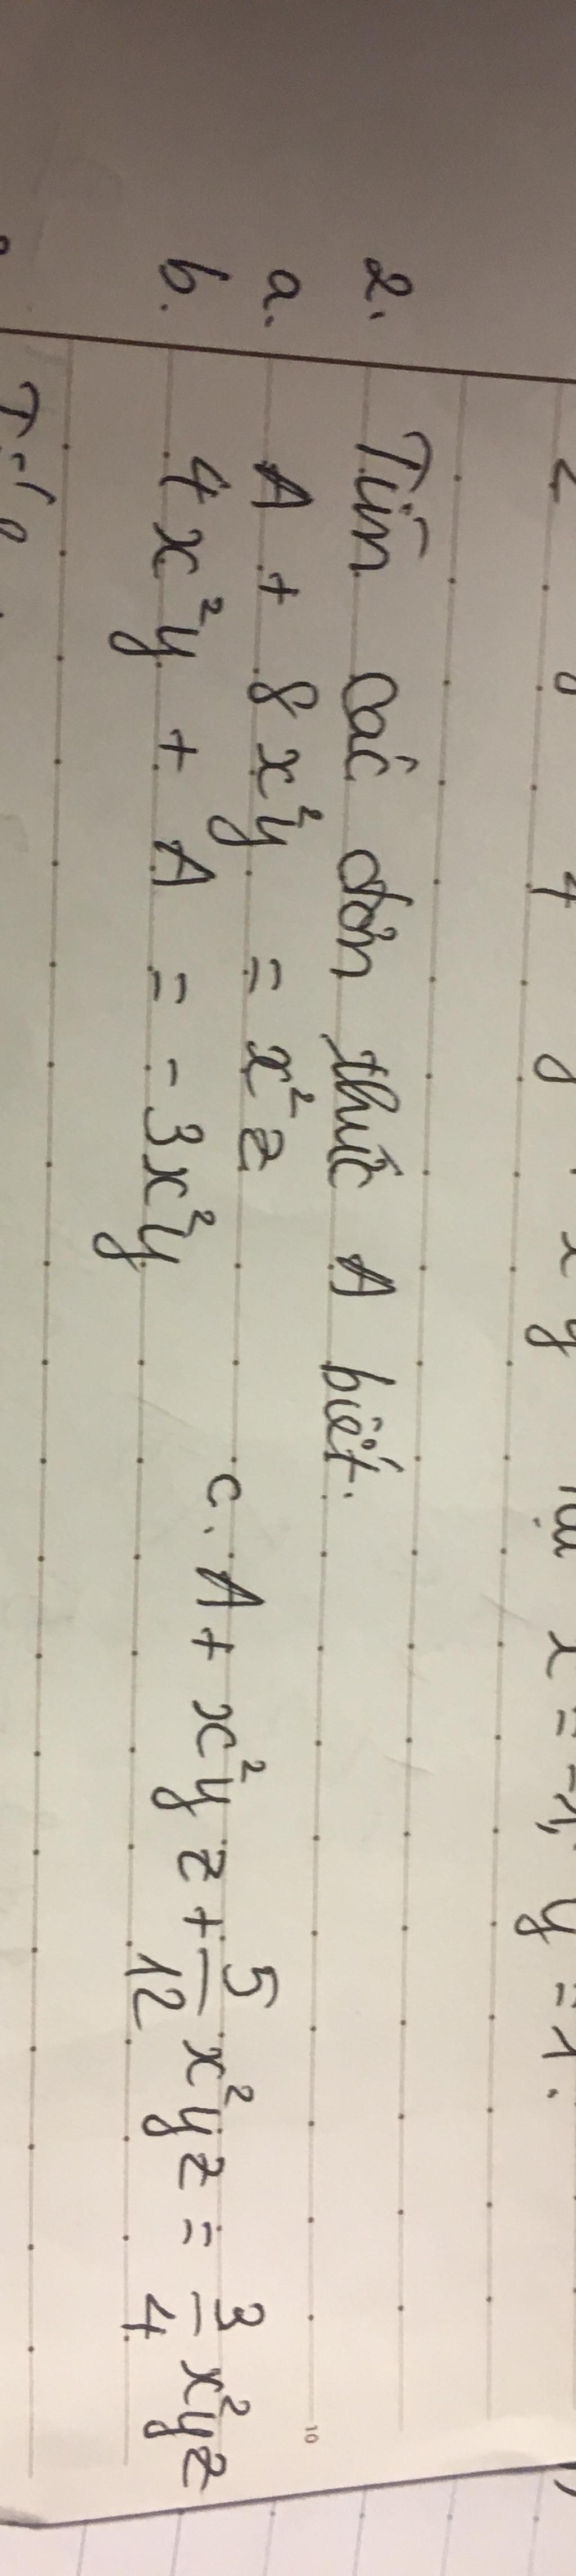 x = -1, y = 1.
2. Tìm các đơn thức A biết.
a. A + 8x²y = x²z
b. 4x²y + A = -3x²y
c. A + x²yz + 5/12 x²yz = 3/4 x²yz
10